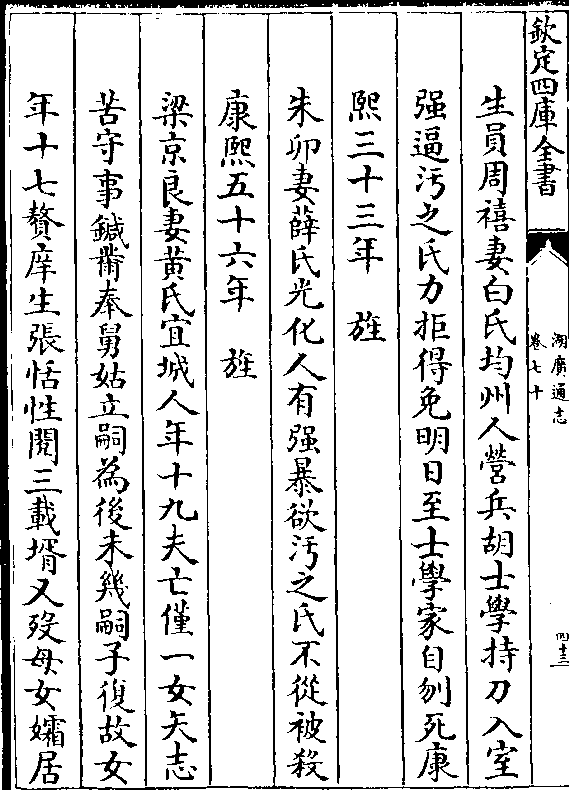 欽定四庫全書
湖廣通志
卷七十
四十三
生員周禧妻白氏均州人營兵胡士學持刀入室
强逼汚之氏力拒得免明日至士學家自刎死康
熙三十三年旌
朱卯妻薛氏光化人有强暴欲汚之氏不從被殺
康熙五十六年旌
梁京良妻黄氏宜城人年十九夫亡僅一女矢志
苦守事鍼黹奉舅姑立嗣為後未幾嗣子復故女
年十七贅庠生張恬性閲三載壻又殁母女孀居